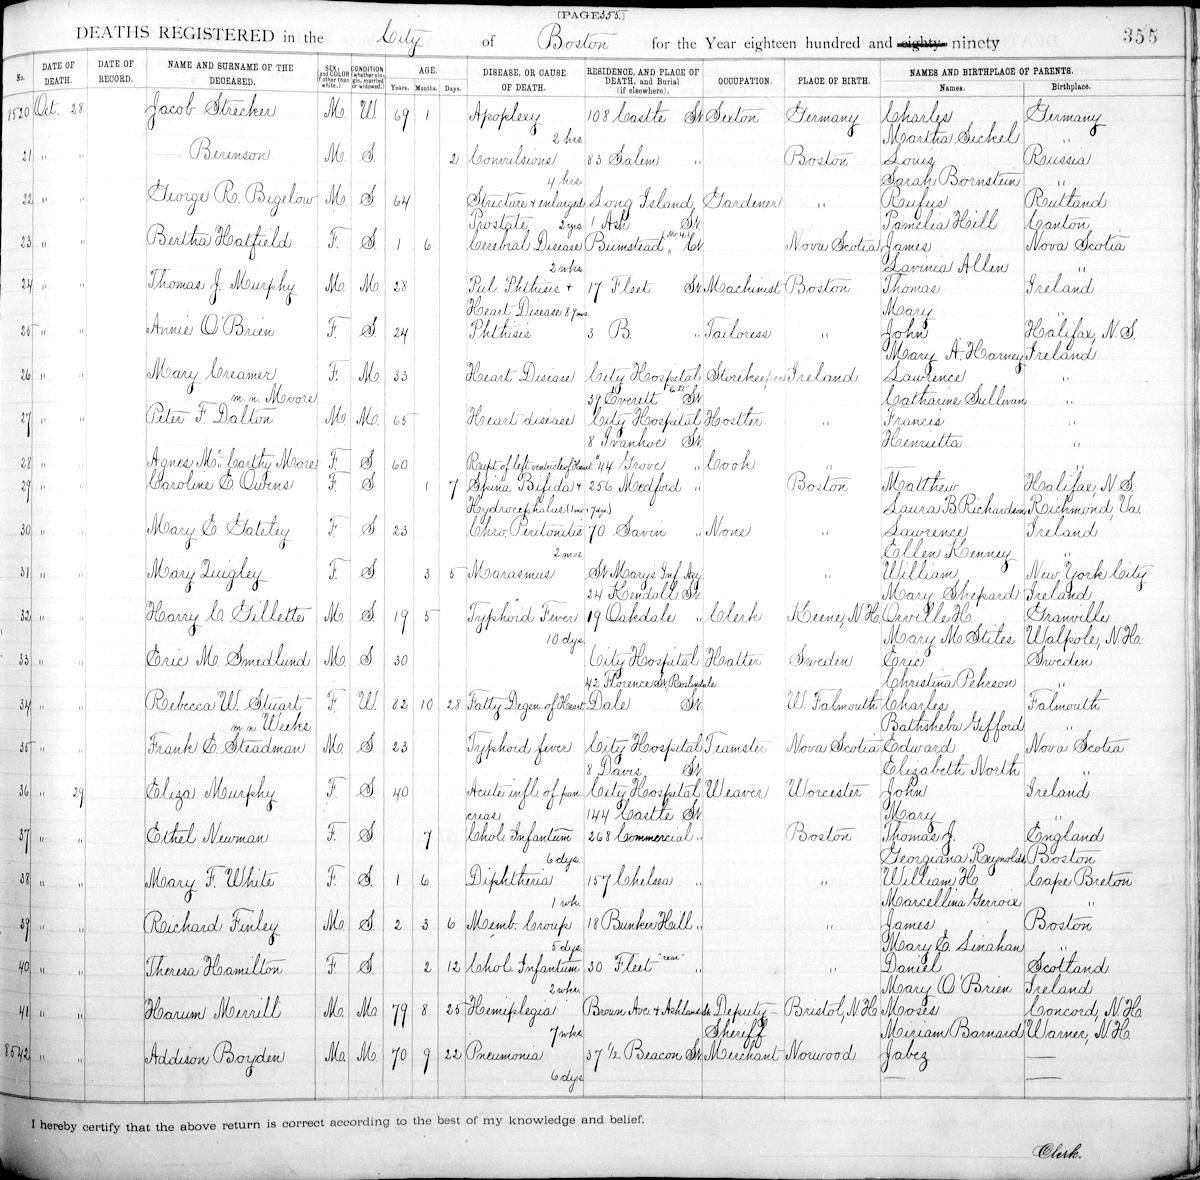 [PAGE 355.]
DEATHS REGISTERED in the City of Boston for the Year eighteen hundred and eighty ninety 355
No. DATE OF DEATH. DATE OF RECORD. NAME AND SURNAME OF THE DECEASED. SEX; and COLOR (if other than white.) CONDITION (whether single, married or widowed.) AGE. Years. Months. Days. DISEASE, OR CAUSE OF DEATH. RESIDENCE, AND PLACE OF DEATH, and Burial (if elsewhere). OCCUPATION. PLACE OF BIRTH. NAMES AND BIRTHPLACE OF PARENTS. Names. Birthplace.
8520 Oct. 28 Jacob Strecker M. W. 69 1 Apoplexy 108 Castle St. Sexton Germany Charles Germany
2 hrs. Martha Sickel "
21 " " — Berenson M. S. 2 Convulsions 83 Salem " Boston Louis Russia
4 hrs. Sarah Bornstein "
22 " " George R. Bigelow M. S 64 Stricture & enlarged Long Island, Gardener " Rufus Rutland
Prostate 2 yrs 1 Ash St. Pamelia Hill Canton
23 " " Bertha Hatfield F. S. 1 6 Cerebral Disease Bumstead Ct. Nova Scotia James Nova Scotia
2 wks. Lavinia Allen "
24 " " Thomas J. Murphy M. M 28 Pul Phthisis & 17 Fleet St. Machinist Boston Thomas Ireland
Heart Disease 8 yrs. Mary "
25 " " Annie O'Brien F. S. 24 Phthisis 3 B. " Tailoress " John Halifax, N.S.
Mary A. Harney Ireland
26 " " Mary Creamer F. M 33 Heart Disease City Hospital Storekeeper Ireland Lawrence "
m.n. Moore 39 Everett "C.D." St. Catharine Sullivan "
27 " " Peter F. Dalton M. M. 65 Heart disease City Hospital Hostler " Francis "
8 Ivanhoe St. Henrietta "
28 " " Agnes McCarthy More F. S 60 Rupt. of left ventricle of Heart #44 Grove " Cook " "
29 " " Caroline E Owens F. S 1 7 Spina Bifida & 256 Medford " Boston Matthew Halifax, N.S.
Hydrocephalus (1 mo & 7 dys) Laura B Richardson Richmond, Va.
30 " " Mary E Gateley F. S. 23 Chro. Peritonitis 70 Savin " None " Lawrence Ireland
2 mos Ellen Kenney "
31 " " Mary Quigley F. S 3 5 Marasmus St. Mary's Inf Asy. " William New York City
24 Kendall St. Mary Shepard Ireland
32 " " Harry C Gillette M. S. 19 5 Typhoid Fever 19 Oakdale " Clerk Keene, N.H. Orville H Granville
10 dys. Mary M Stiles Walpole, N.H.
33 " " Eric M Smedlund M. S 30 City Hospital Hatter Sweden Eric Sweden
42 Florence St. Roslindale Christina Pehrson "
34 " " Rebecca W. Stuart F. W. 82 10 28 Fatty Degen. of Heart Dale St. W. Falmouth Charles Falmouth
m.n. Weeks Bathsheba Gifford "
35 " " Frank E. Steadman M. S 23 Typhoid fever City Hospital Teamster Nova Scotia Edward Nova Scotia
8 Davis St. Elizabeth North "
36 " 29 Eliza Murphy F. S 40 Acute infl. of pan City Hospital Weaver Worcester John Ireland
creas 144 Castle St. Mary "
37 " " Ethel Newman F. S 7 Chol. Infantum 268 Commercial " Boston Thomas J. England
6 dys. Georgiana Reynolds Boston
38 " " Mary F. White F. S. 1 6 Diphtheria 157 Chelsea " " William H Cape Breton
1 wk. Marcellina Gerroix "
39 " " Richard Finley M. S. 2 3 6 Memb. Croup 18 Bunker Hill " " James Boston
5 dys. Mary E. Linahan "
40 " " Theresa Hamilton F. S. 2 12 Chol. Infantum 30 Fleet "rear" " " Daniel Scotland
2 wks. Mary O'Brien Ireland
41 " " Harum Merrill M. M 79 8 25 Hemiplegia Brown Ave & Ashland St. Deputy- Bristol, N.H. Moses Concord, N.H.
7 wks. Sheriff Miriam Barnard Warner, N.H.
8542 " " Addison Boyden M. M 70 9 22 Pneumonia 37 1/2 Beacon St. Merchant Norwood Jabez —
6 dys — —
I hereby certify that the above return is correct according to the best of my knowledge and belief.
Clerk.